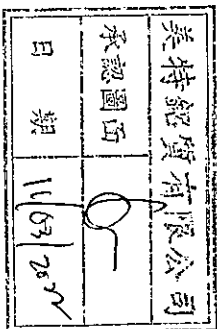 美特鋁質有限公司
承認圖面
日期 11/03/2022